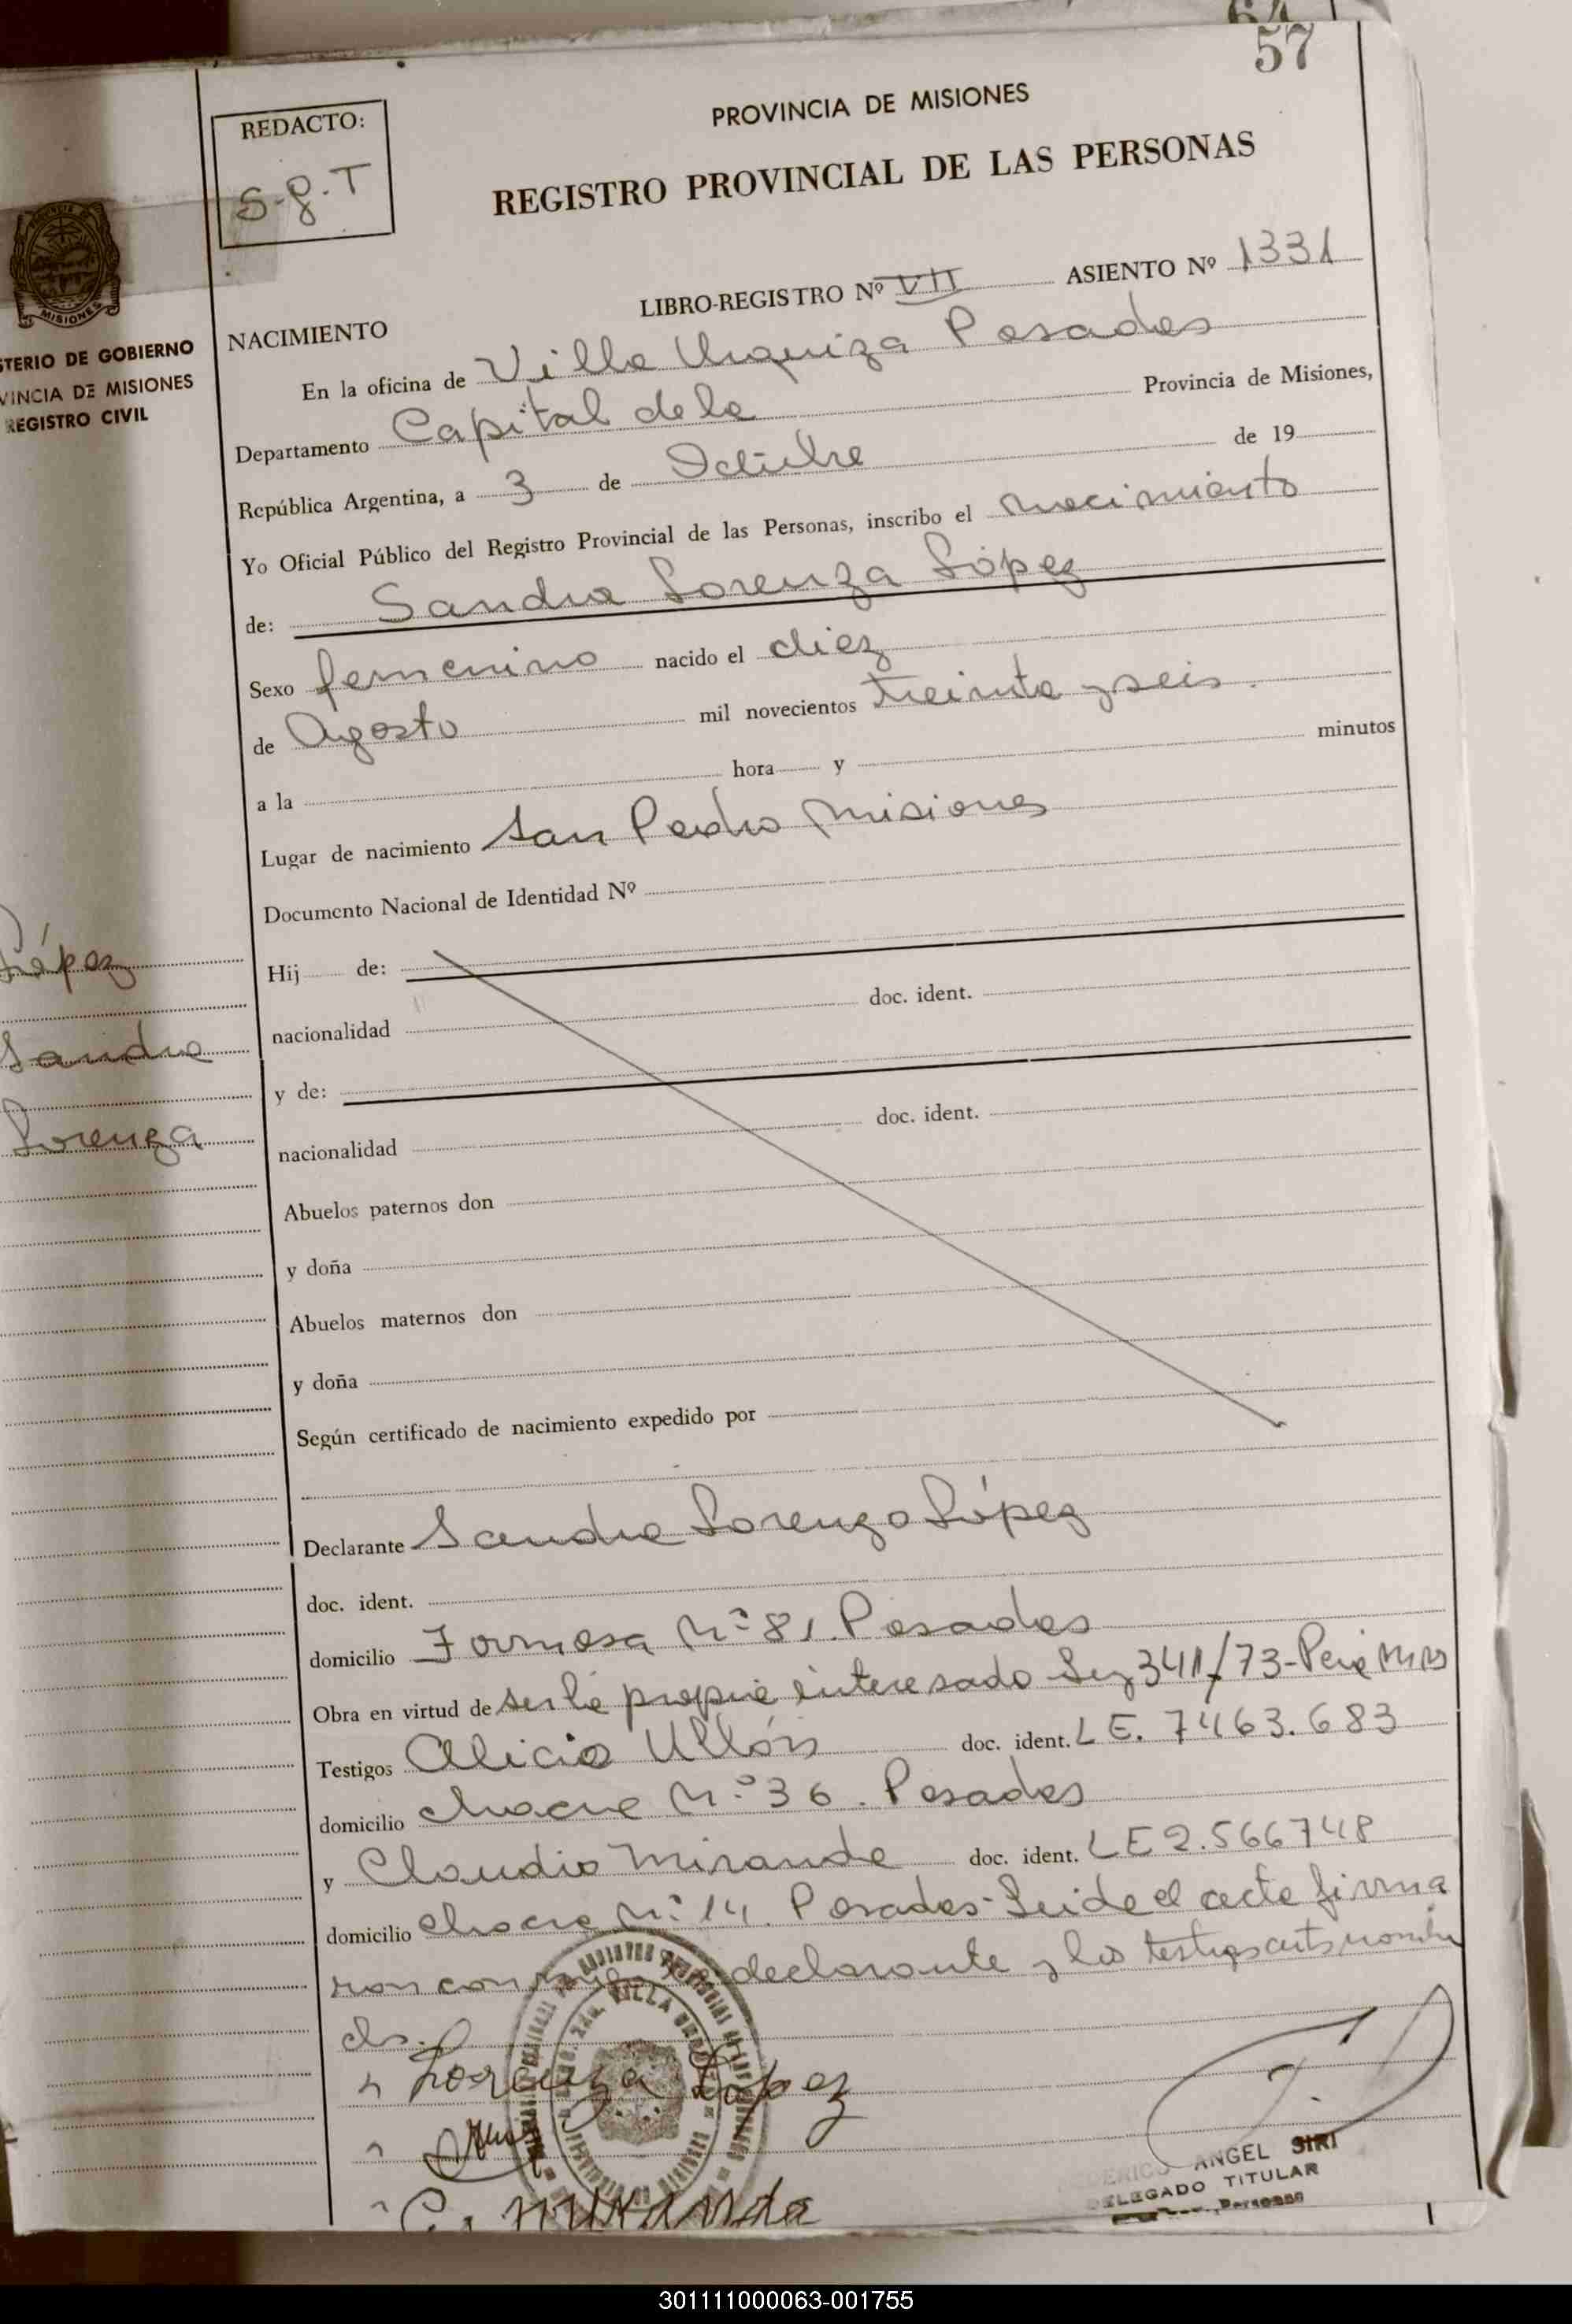 64
57
PROVINCIA DE MISIONES
REDACTO:
S.g.T
REGISTRO PROVINCIAL DE LAS PERSONAS
LIBRO-REGISTRO Nº VII ASIENTO Nº 1331
MISIONES
STERIO DE GOBIERNO
VINCIA DE MISIONES
REGISTRO CIVIL
NACIMIENTO
En la oficina de Villa Urquiza Posadas
Departamento Capital de la Provincia de Misiones,
República Argentina, a 3 de Octubre de 19
Yo Oficial Público del Registro Provincial de las Personas, inscribo el nacimiento
de: Sandra Lorenza López
Sexo femenino nacido el diez
de Agosto mil novecientos treinta y seis.
a la hora y minutos
Lugar de nacimiento San Pedro Misiones
Documento Nacional de Identidad Nº
López
Hij de:
nacionalidad doc. ident.
Sandra
y de:
Lorenza
nacionalidad doc. ident.
Abuelos paternos don
y doña
Abuelos maternos don
y doña
Según certificado de nacimiento expedido por
Declarante Sandra Lorenza López
doc. ident.
domicilio Formosa Nº 81. Posadas
Obra en virtud de ser la propia interesado Ley 341/73-
Testigos Alicio Ullón doc. ident. LE. 7463.683
domicilio chacra Nº 36. Posadas
y Claudio Miranda doc. ident. LE 2.566748
domicilio chacra Nº 14. Posadas- Leida el acta firma
ron conmigo declarante y los testigos nombra
ds.
Lorenza López
C. miranda
ANGEL SIRI
DELEGADO TITULAR
Personas
301111000063-001755